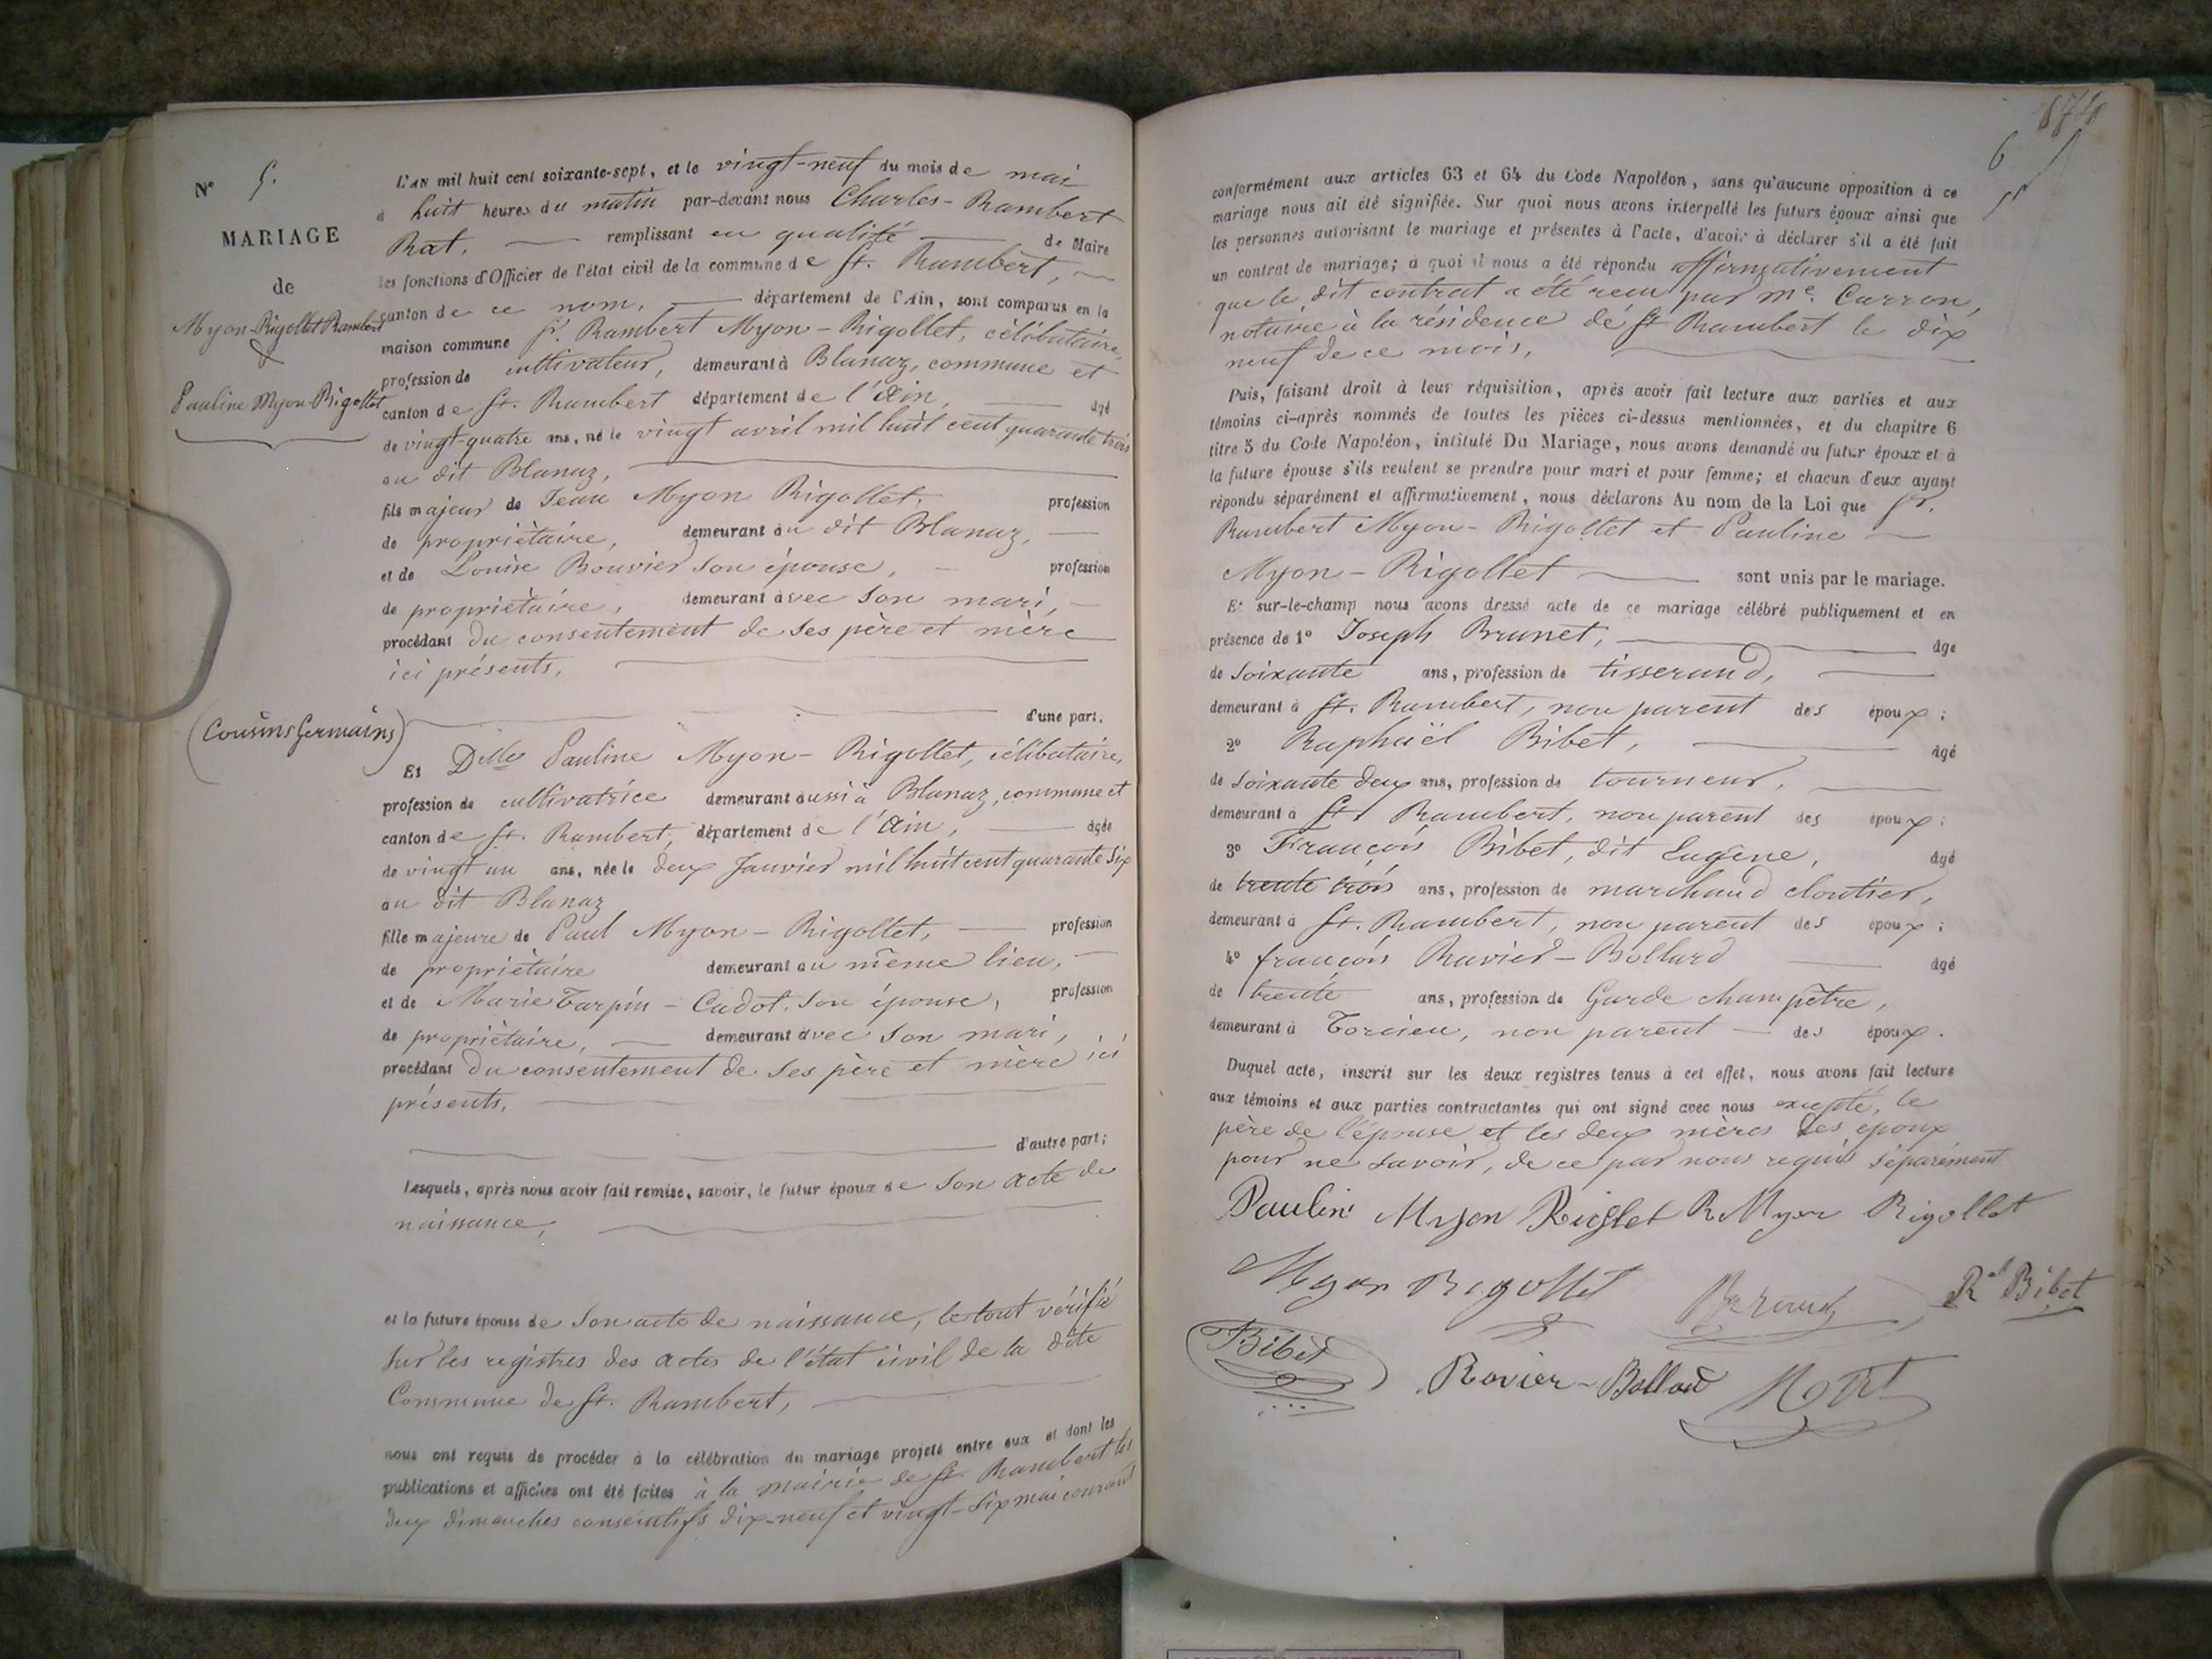 N° 5.
MARIAGE
de
Myon-Rigollet Rambert
&
Pauline Myon-Rigollet
(Cousins Germains)
L'AN mil huit cent soixante-sept, et le vingt-neuf du mois de mai
à huit heures du matin par-devant nous Charles-Rambert
Rat, remplissant en qualité de Maire
les fonctions d'Officier de l'état civil de la commune de St. Rambert,
canton de ce nom, département de l'Ain, sont comparus en la
maison commune Sr. Rambert Myon-Rigollet, célibataire,
profession de cultivateur, demeurant à Blanaz, commune et
canton de St. Rambert département de l'Ain, âgé
de vingt-quatre ans, né le vingt avril mil huit cent quarante trois
au dit Blanaz,
fils majeur de Jean Myon Rigollet, profession
de propriètaire, demeurant au dit Blanaz,
et de Louise Bouvier son épouse, profession
de propriètaire, demeurant avec son mari,
procédant du consentement de ses père et mère
ici présents,
d'une part.
Et Dlle Pauline Myon-Rigollet, célibataire,
profession de cultivatrice demeurant aussi à Blanaz, commune et
canton de St. Rambert, département de l'Ain, âgée
de vingt un ans, née le deux Janvier mil huit cent quarante six
au dit Blanaz
fille majeure de Paul Myon-Rigollet, profession
de propriètaire demeurant au même lieu,
et de Marie Tarpin-Cadot, son épouse, profession
de propriètaire, demeurant avec son mari,
procédant du consentement de ses père et mère ici
présents,
d'autre part;
Lesquels, après nous avoir fait remise, savoir, le futur époux de son acte de
naissance,
et la future épouse de son acte de naissance, le tout vérifié
sur les registres des actes de l'état civil de la dite
Commune de St. Rambert,
nous ont requis de procéder à la célébration du mariage projeté entre eux et dont les
publications et affiches ont été faites à la mairie de St. Rambert les
deux dimanches consécutifs dix-neuf et vingt-six mai courant
6
conformément aux articles 63 et 64 du Code Napoléon, sans qu'aucune opposition à ce
mariage nous ait été signifiée. Sur quoi nous avons interpellé les futurs époux ainsi que
les personnes autorisant le mariage et présentes à l'acte, d'avoir à déclarer s'il a été fait
un contrat de mariage; à quoi il nous a été répondu affirmativement
que le dit contrat a été reçu par Me. Carron,
notaire à la résidence de St Rambert le dix
neuf de ce mois,
Puis, faisant droit à leur réquisition, après avoir fait lecture aux parties et aux
témoins ci-après nommés de toutes les pièces ci-dessus mentionnées, et du chapitre 6
titre 5 du Code Napoléon, intitulé Du Mariage, nous avons demandé au futur époux et à
la future épouse s'ils veulent se prendre pour mari et pour femme; et chacun d'eux ayant
répondu séparément et affirmativement, nous déclarons Au nom de la Loi que Sr.
Rambert Myon-Rigollet et Pauline
Myon-Rigollet sont unis par le mariage.
Et sur-le-champ nous avons dressé acte de ce mariage célébré publiquement et en
présence de 1° Joseph Brunet, âgé
de soixante ans, profession de tisserand,
demeurant à St. Rambert, non parent des époux;
2° Raphaël Bibet, âgé
de soixante deux ans, profession de tourneur,
demeurant à St. Rambert, non parent des époux;
3° François Bibet, dit Eugène, âgé
de trente trois ans, profession de marchand cloutier,
demeurant à St. Rambert, non parent des époux;
4° françois Ravier-Bollard âgé
de trente ans, profession de Garde champêtre,
demeurant à Torcieu, non parent des époux.
Duquel acte, inscrit sur les deux registres tenus à cet effet, nous avons fait lecture
aux témoins et aux parties contractantes qui ont signé avec nous excepté, le
père de l'épouse et les deux mères des époux
pour ne savoir, de ce par nous requis séparément
Paulin Myon Riglet R Myon Rigollet
Myon Rigollet Rel Bibet
Bibet Ravier-Bollad